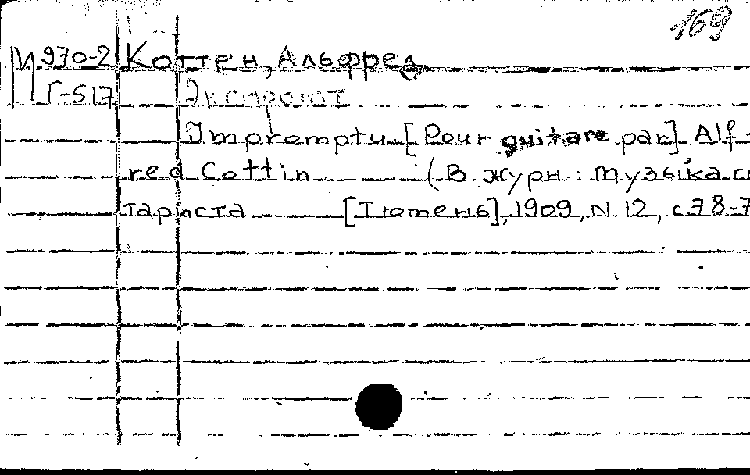 169
М 970-2 Коттен, Альфред
Г-517 Экспромт
Impromptu [Pour guitare par] Alf-
red Cottin (В журн: Музыка ги
тариста [Тюмень], 1909, N 12, с. 78-7